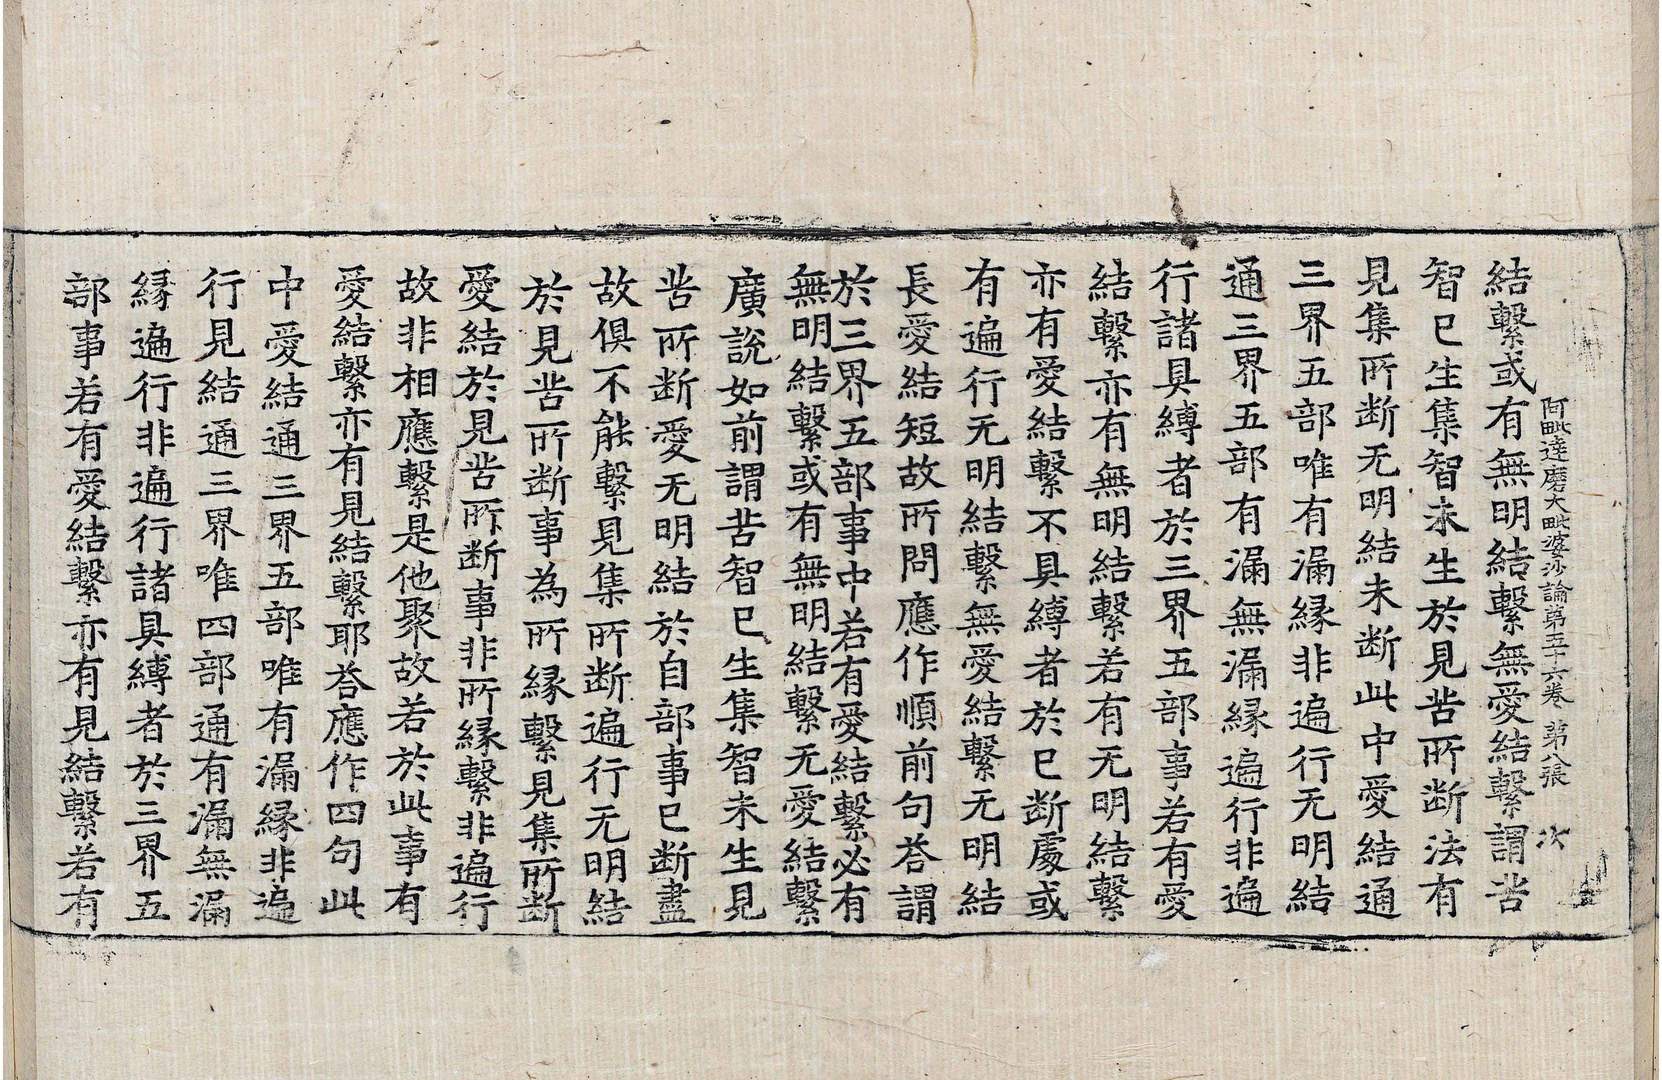 阿毗達磨大毗婆沙論第五十六卷 第八張 次
結繫或有無明結繫無愛結繫謂苦
智已生集智未生於見苦所断法有
見集所断无明結未断此中愛結通
三界五部唯有漏緣非遍行无明結
通三界五部有漏無漏緣遍行非遍
行諸具縛者於三界五部事若有愛
結繫亦有無明結繫若有无明結繫
亦有愛結繫不具縛者於已断處或
有遍行无明結繫無愛結繫无明結
長愛結短故所問應作順前句荅謂
於三界五部事中若有愛結繫必有
無明結繫或有無明結繫无愛結繫
廣說如前謂苦智已生集智未生見
苦所断愛无明結於自部事已断盡
故俱不能繫見集所断遍行无明結
於見苦所断事為所緣繫見集所断
愛結於見苦所断事非所緣繫非遍行
故非相應繫是他聚故若於此事有
愛結繫亦有見結繫耶荅應作四句此
中愛結通三界五部唯有漏緣非遍
行見結通三界唯四部通有漏無漏
緣遍行非遍行諸具縛者於三界五
部事若有愛結繫亦有見結繫若有